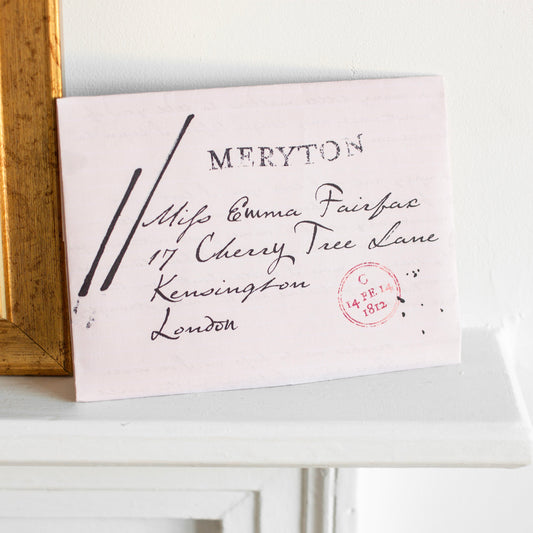 MERYTON
Miſs Emma Fairfax
17 Cherry Tree Lane
Kensington
London
C
14 FE 14
1812